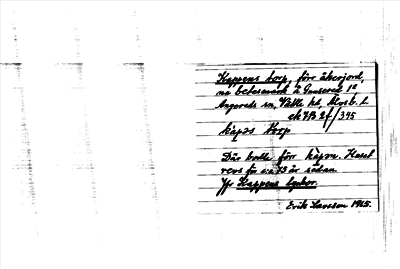 Kappens torp, förr åkerjord,
nu betesmark å Gunsered 1²
Angereds sn, Vättle hd, Älvsb. l.
ek 7B 2f/345
kàpɔs torp
Där bodde förr kàpɔn. Huset
revs för c:a 75 år sedan.
Jfr Kappens lyckor.
Erik Larsson 1965.